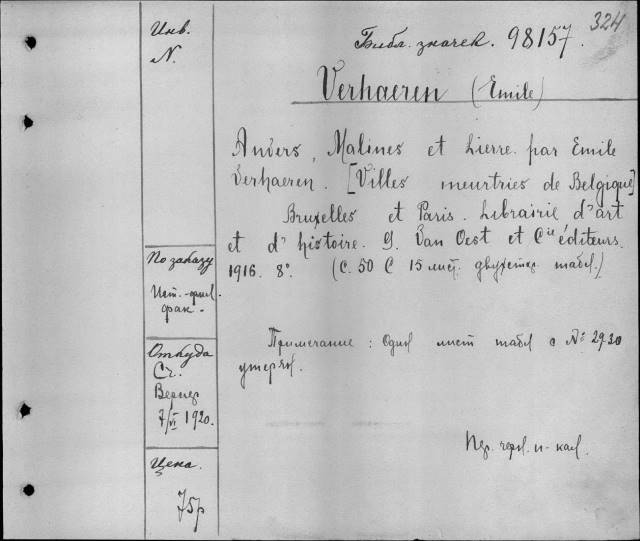 324
Инв.
N.
Библ. значек. 98157.
Verhaeren (Emile)
Anvers, Malines et Lierre par Emile
Verhaeren. [Villes meurtries de Belgique]
Bruxelles et Paris. Librairie d'art
et d'histoire. G. Van Oest et Cie éditeurs.
1916. 8°. (С. 50 С 15 лист. двухстор. табл.)
По заказу
Ист.-фил.
фак.
Примечание: Один лист табл с № 29.30
утерян.
Откуда
Сч.
Вернер
7/VI 1920.
Цена.
75р
Пер. черн. и